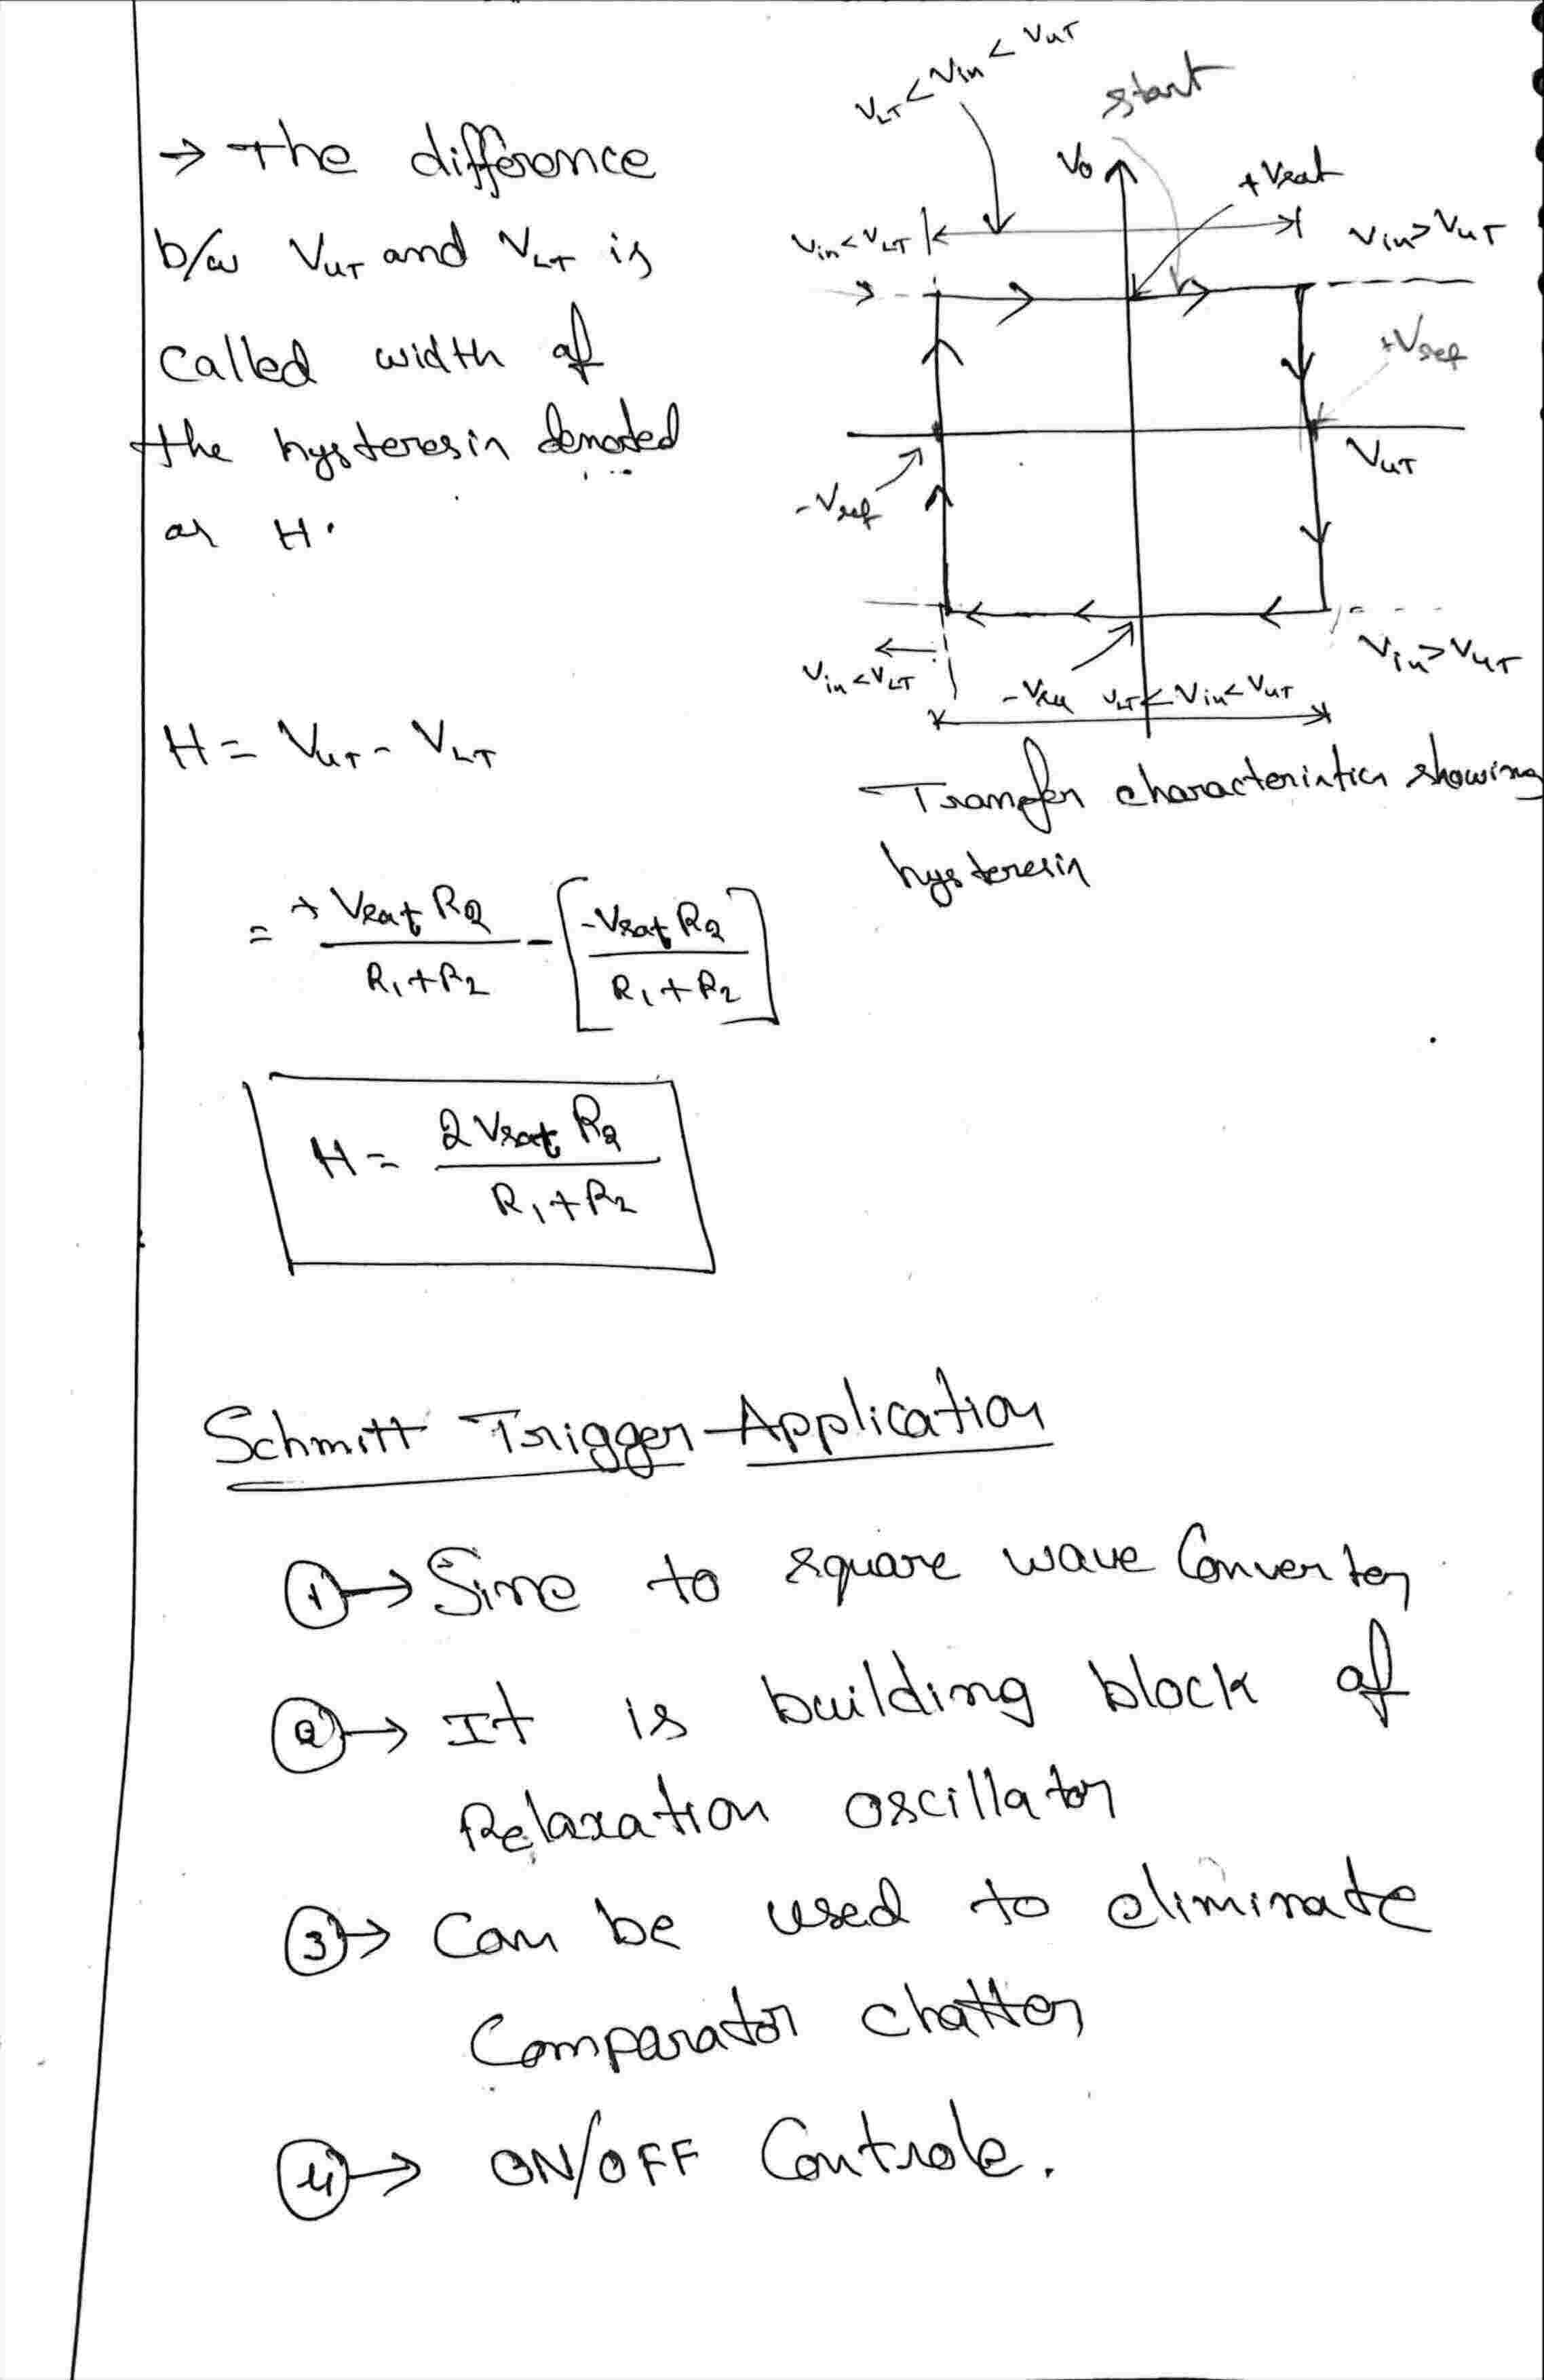 → The difference
b/w VUT and VLT is
called width of
the hysteresis denoted
as H.
VLT < Vin < VUT
start
Vo
+Vsat
Vin<VLT
Vin>VUT
+Vref
VUT
-Vref
Vin>VUT
Vin<VLT
VLT < Vin < VUT
Transfer characteristics showing
hysteresis
H = VUT - VLT
= +Vsat R2 / R1+R2 - [-Vsat R2 / R1+R2]
H = 2Vsat R2 / R1+R2
Schmitt Trigger Application
① → Sine to square wave Converter
② → It is building block of
Relaxation oscillator
③ → Can be used to eliminate
Comparator chatter
④ → ON/OFF Controle.